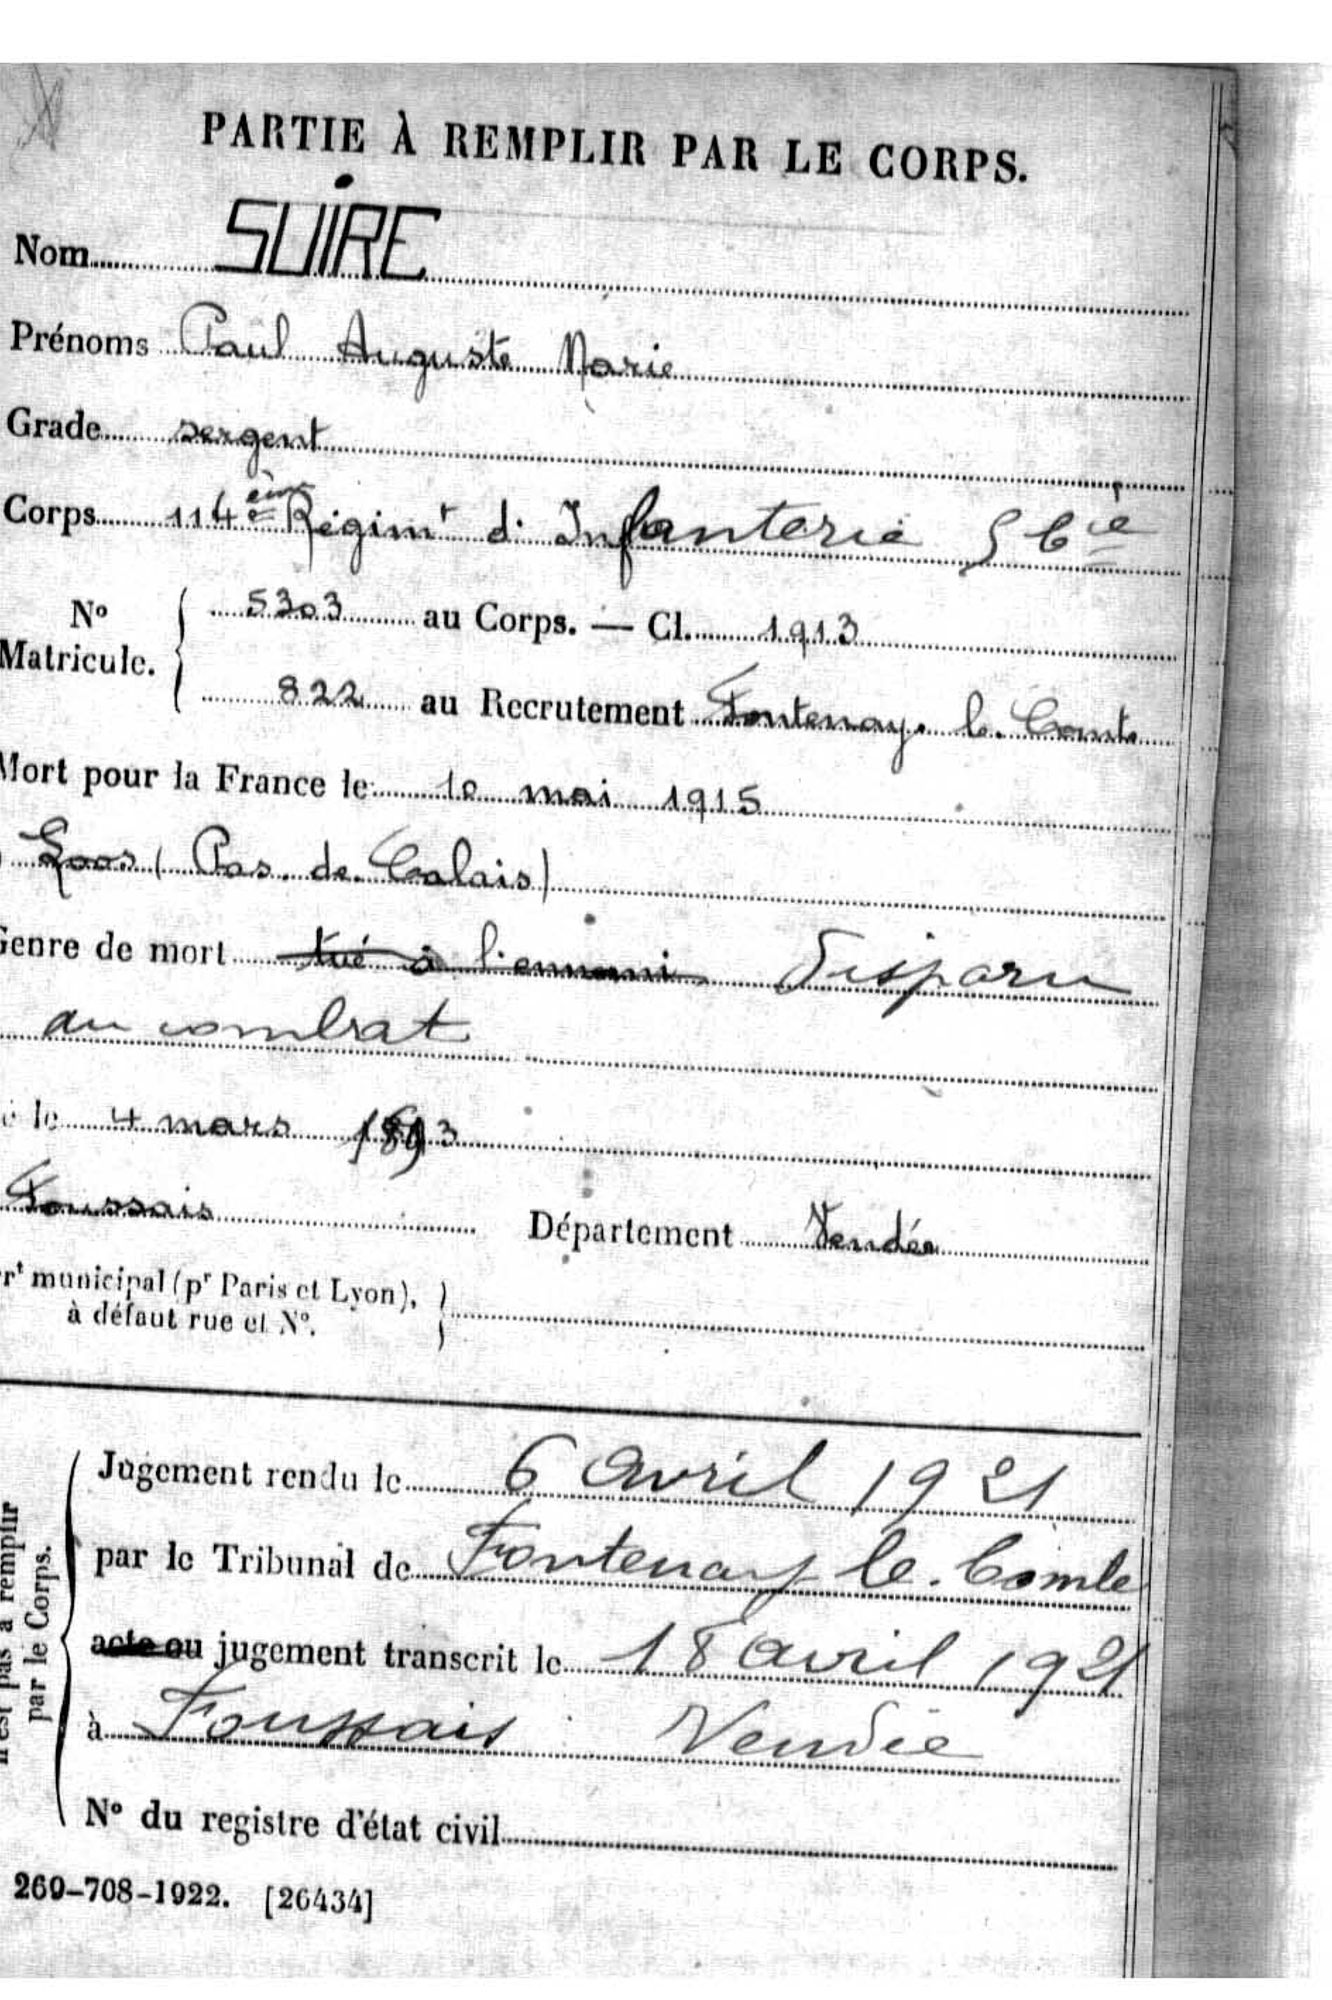 PARTIE À REMPLIR PAR LE CORPS.
Nom SUIRE
Prénoms Paul Auguste Marie
Grade sergent
Corps 114ème Régimt d'Infanterie 5 Cie
No Matricule. 5303 au Corps. — Cl. 1913
822 au Recrutement Fontenay-le-Comte
Mort pour la France le 10 mai 1915
Loos (Pas-de-Calais)
Genre de mort tué à l'ennemi Disparu
au combat
le 4 mars 1893
Foussais Département Vendée
rt municipal (pr Paris et Lyon),
à défaut rue et No.
Jugement rendu le 6 avril 1921
par le Tribunal de Fontenay le Comte
acte ou jugement transcrit le 18 avril 1921
à Foussais Vendée
No du registre d'état civil
n'est pas à remplir
par le Corps.
269-708-1922. [26434]